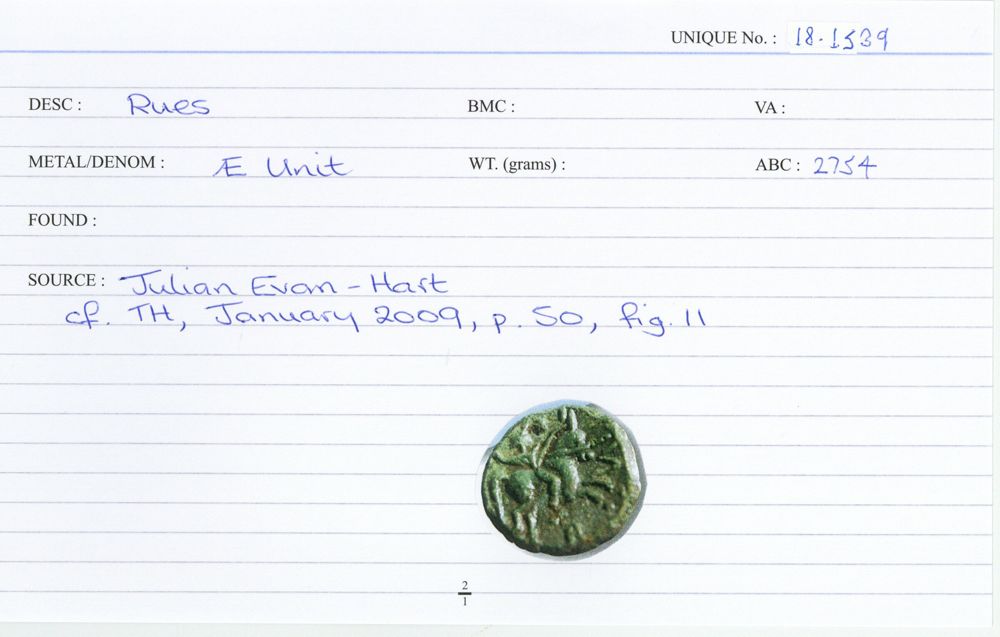 UNIQUE No. : 18.1539
DESC : Rues BMC : VA :
METAL/DENOM : Æ Unit WT. (grams) : ABC : 2754
FOUND :
SOURCE : Julian Evan-Hart
cf. TH, January 2009, p. 50, fig. 11
2
1